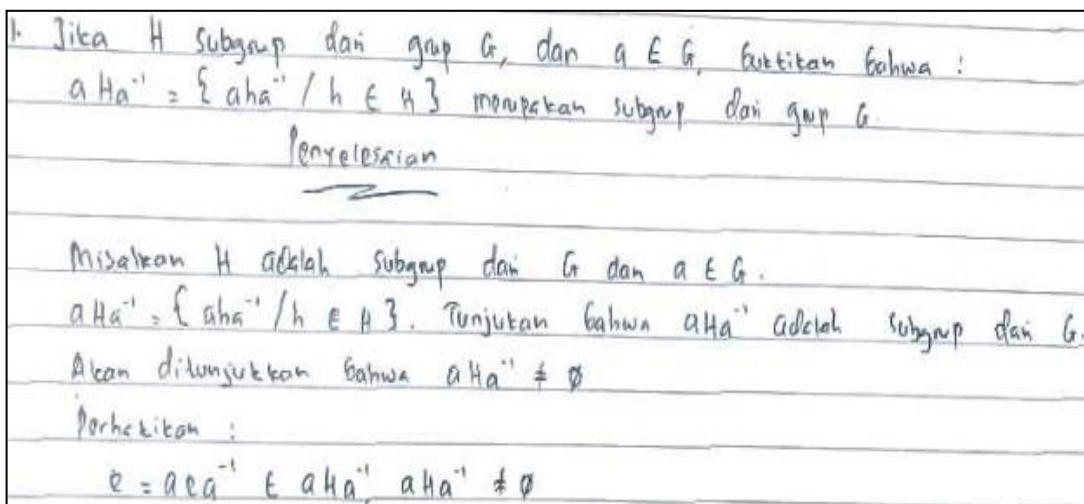 1. Jika H Subgrup dari grup G, dan a ∈ G, buktikan bahwa :
aHa⁻¹ = { aha⁻¹ / h ∈ H } merupakan subgrup dari grup G.
Penyelesaian
Misalkan H adalah subgrup dari G dan a ∈ G.
aHa⁻¹ = { aha⁻¹ / h ∈ H }. Tunjukan bahwa aHa⁻¹ adalah subgrup dari G.
Akan ditunjukkan bahwa aHa⁻¹ ≠ ∅
Perhatikan :
e = aea⁻¹ ∈ aHa⁻¹, aHa⁻¹ ≠ ∅